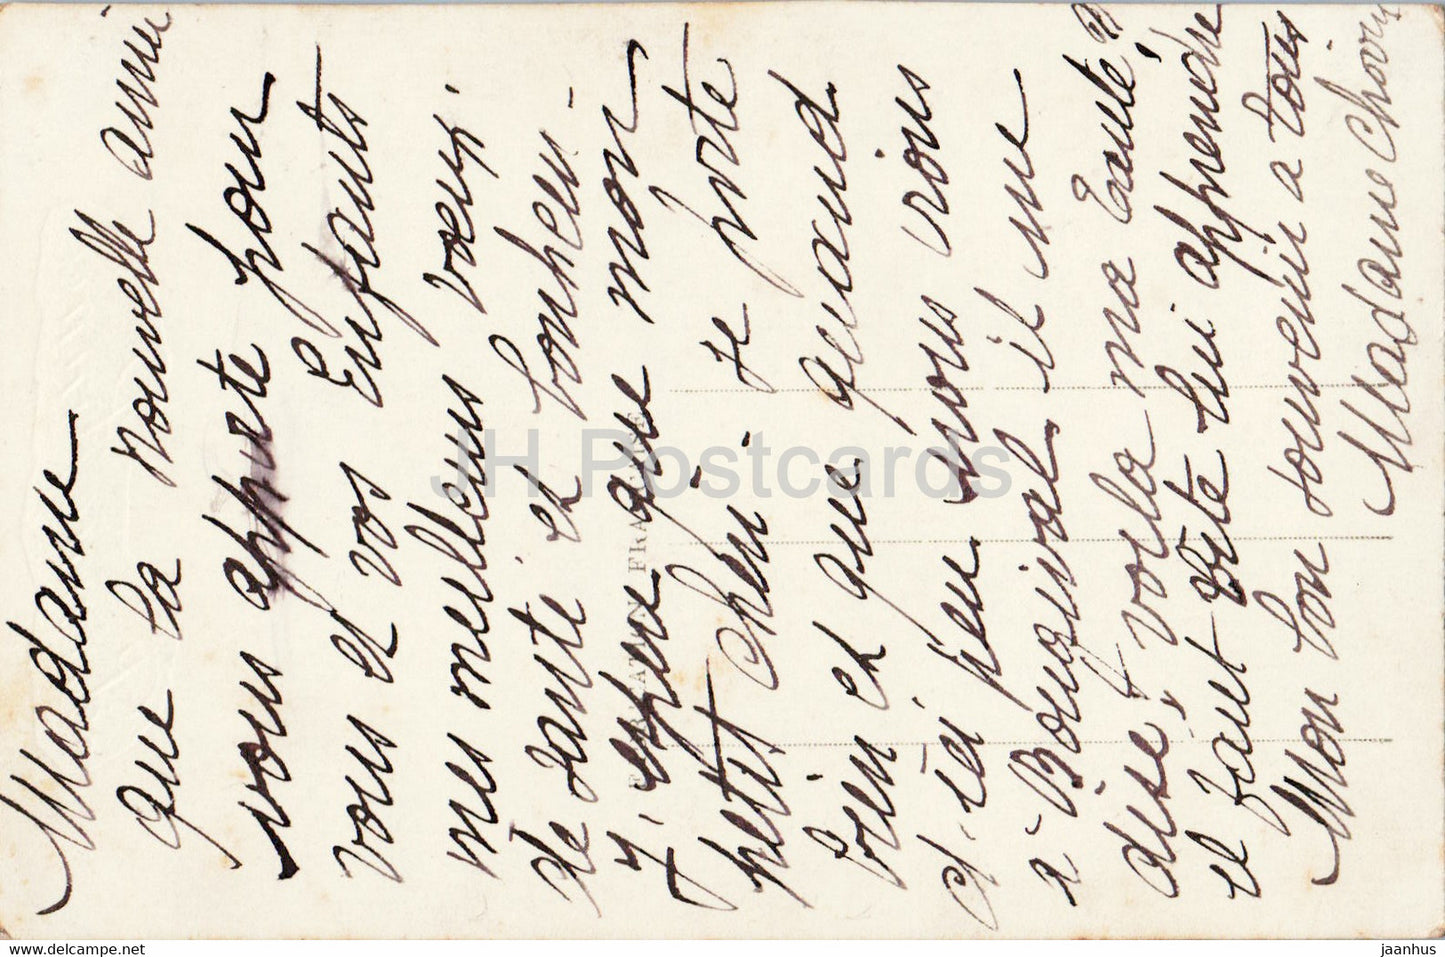 Madame
que la nouvelle anné
vous apporte pour
vous et vos Enfants
mes meilleus voeux
de sante et bonheur
J'espère que mon
petit cheri se porte
bien et que quand
d'ici peu nous irons
a Bougival il me
dise voila ma Tante
il faut vite lui apprendre
Mon bon souvenir a tous
Madame
FABRICATION FRANÇAISE
JH Postcards
www.delcampe.net
jaanhus